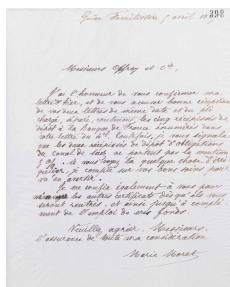 398
Guise Familistère 5 avril 18
Messieurs Offroy et Cie
J'ai l'honneur de vous confirmer ma
lettre d'hier, et de vous accuser bonne réception
de vos deux lettres de même date et du pli
chargé, à part, contenant les cinq récépissés de
dépôt à la Banque de France énumérés dans
votre lettre du 4. Toutefois, je vous signale
que les deux récépissés de dépôt d'obligations
du canal de Suez ne portent pas la mention
Si vous voyez là quelque chose d'irré
gulier, je compte sur vos bons soins pour
m'en avertir.
Je me confie également à vous pour
les autres certificats dès qu'ils vous
seront rentrés, et ainsi jusqu'à complé
ment de l'emploi de mes fonds.
Veuillez agréer, Messieurs,
l'assurance de toute ma considération
Marie Moret